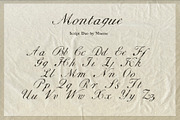 Montague
Script Duo by Mocas
Aa Bb Cc Dd Ee Ff
Gg Hh Ii Jj Kk
Ll Mm Nn Oo
Pp Qq Rr Ss Tt
Uu Vv Ww Xx Yy Zz